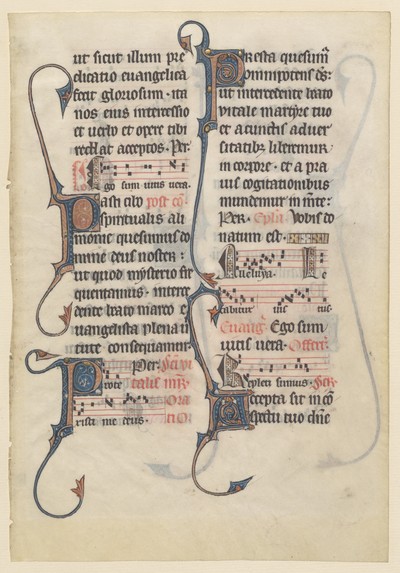 ut sicut illum pre
dicatio euangelica
fecit gloriosum · ita
nos eius intercessio
et uerbo et opere tibi
reddat acceptos · Per
Ego sum uitis uera.
Pasti cibo post cō.
spiritualis ali
monie quesumus do
mine deus noster :
ut quod mysterio fre
quentamus · interce
dente beato marco e
uangelista plena ui
tute consequamur.
Per ·
Prote
talis mr̄.
Ora
xisti me deus.
tio.
Presta quesum̄
omnipotens ds̄ :
ut intercedente beato
vitale martyre tuo
et a cunctis aduer
sitatib; liberemur
in corpore · et a pra
uis cogitationibus
mundemur in mēte :
Per . Epła Vobis do
natum est ·
Alleluya. Le
tabitur ius tus
Euang̃. Ego sum
uitis uera · Offert.
Repleti sumus ·
Accepta sit in cō
spectu tuo dñe